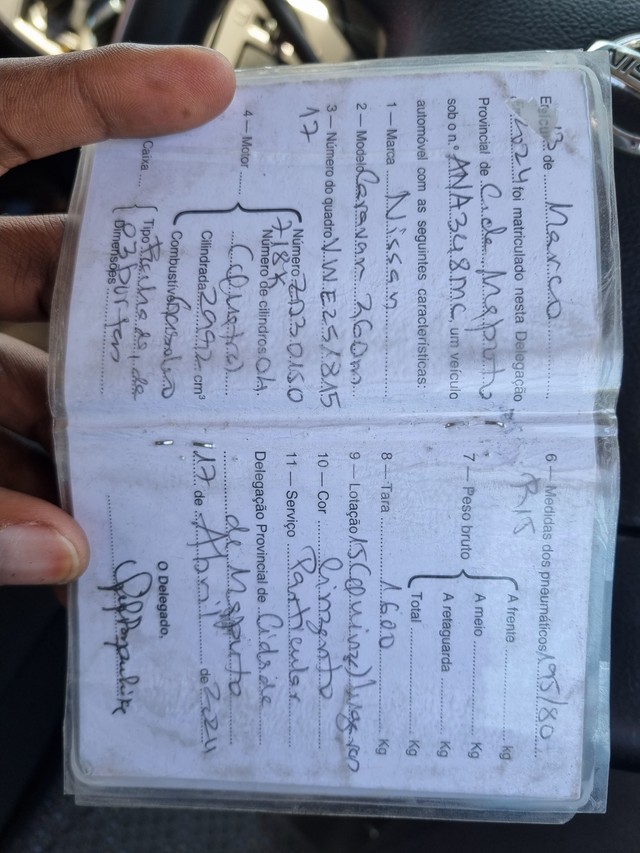 Em 13 de Março
2024 foi matriculado nesta Delegação
Provincial de C. de Maputo
sob o n.º ANA 348 MC, um veículo
automóvel com as seguintes características:
1 — Marca Nissan
2 — Modelo Caravan 260mm
3 — Número do quadro VWE251815
17
4 — Motor
Número ZD30150
718K
Número de cilindros 04
(Quatro)
Cilindrada 2992 cm³
Combustível Gasoleo
Caixa
Tipo Fechada, de
03 portas
Dimensões
6 — Medidas dos pneumáticos 195/80
R15
7 — Peso bruto
A frente Kg
A meio Kg
A retaguarda Kg
Total Kg
8 — Tara 1.600 Kg
9 — Lotação 15 (Quinze) lugares
10 — Cor Cinzento
11 — Serviço Particular
Delegação Provincial de Cidade
de Maputo
17 de Abril de 2024
O Delegado,